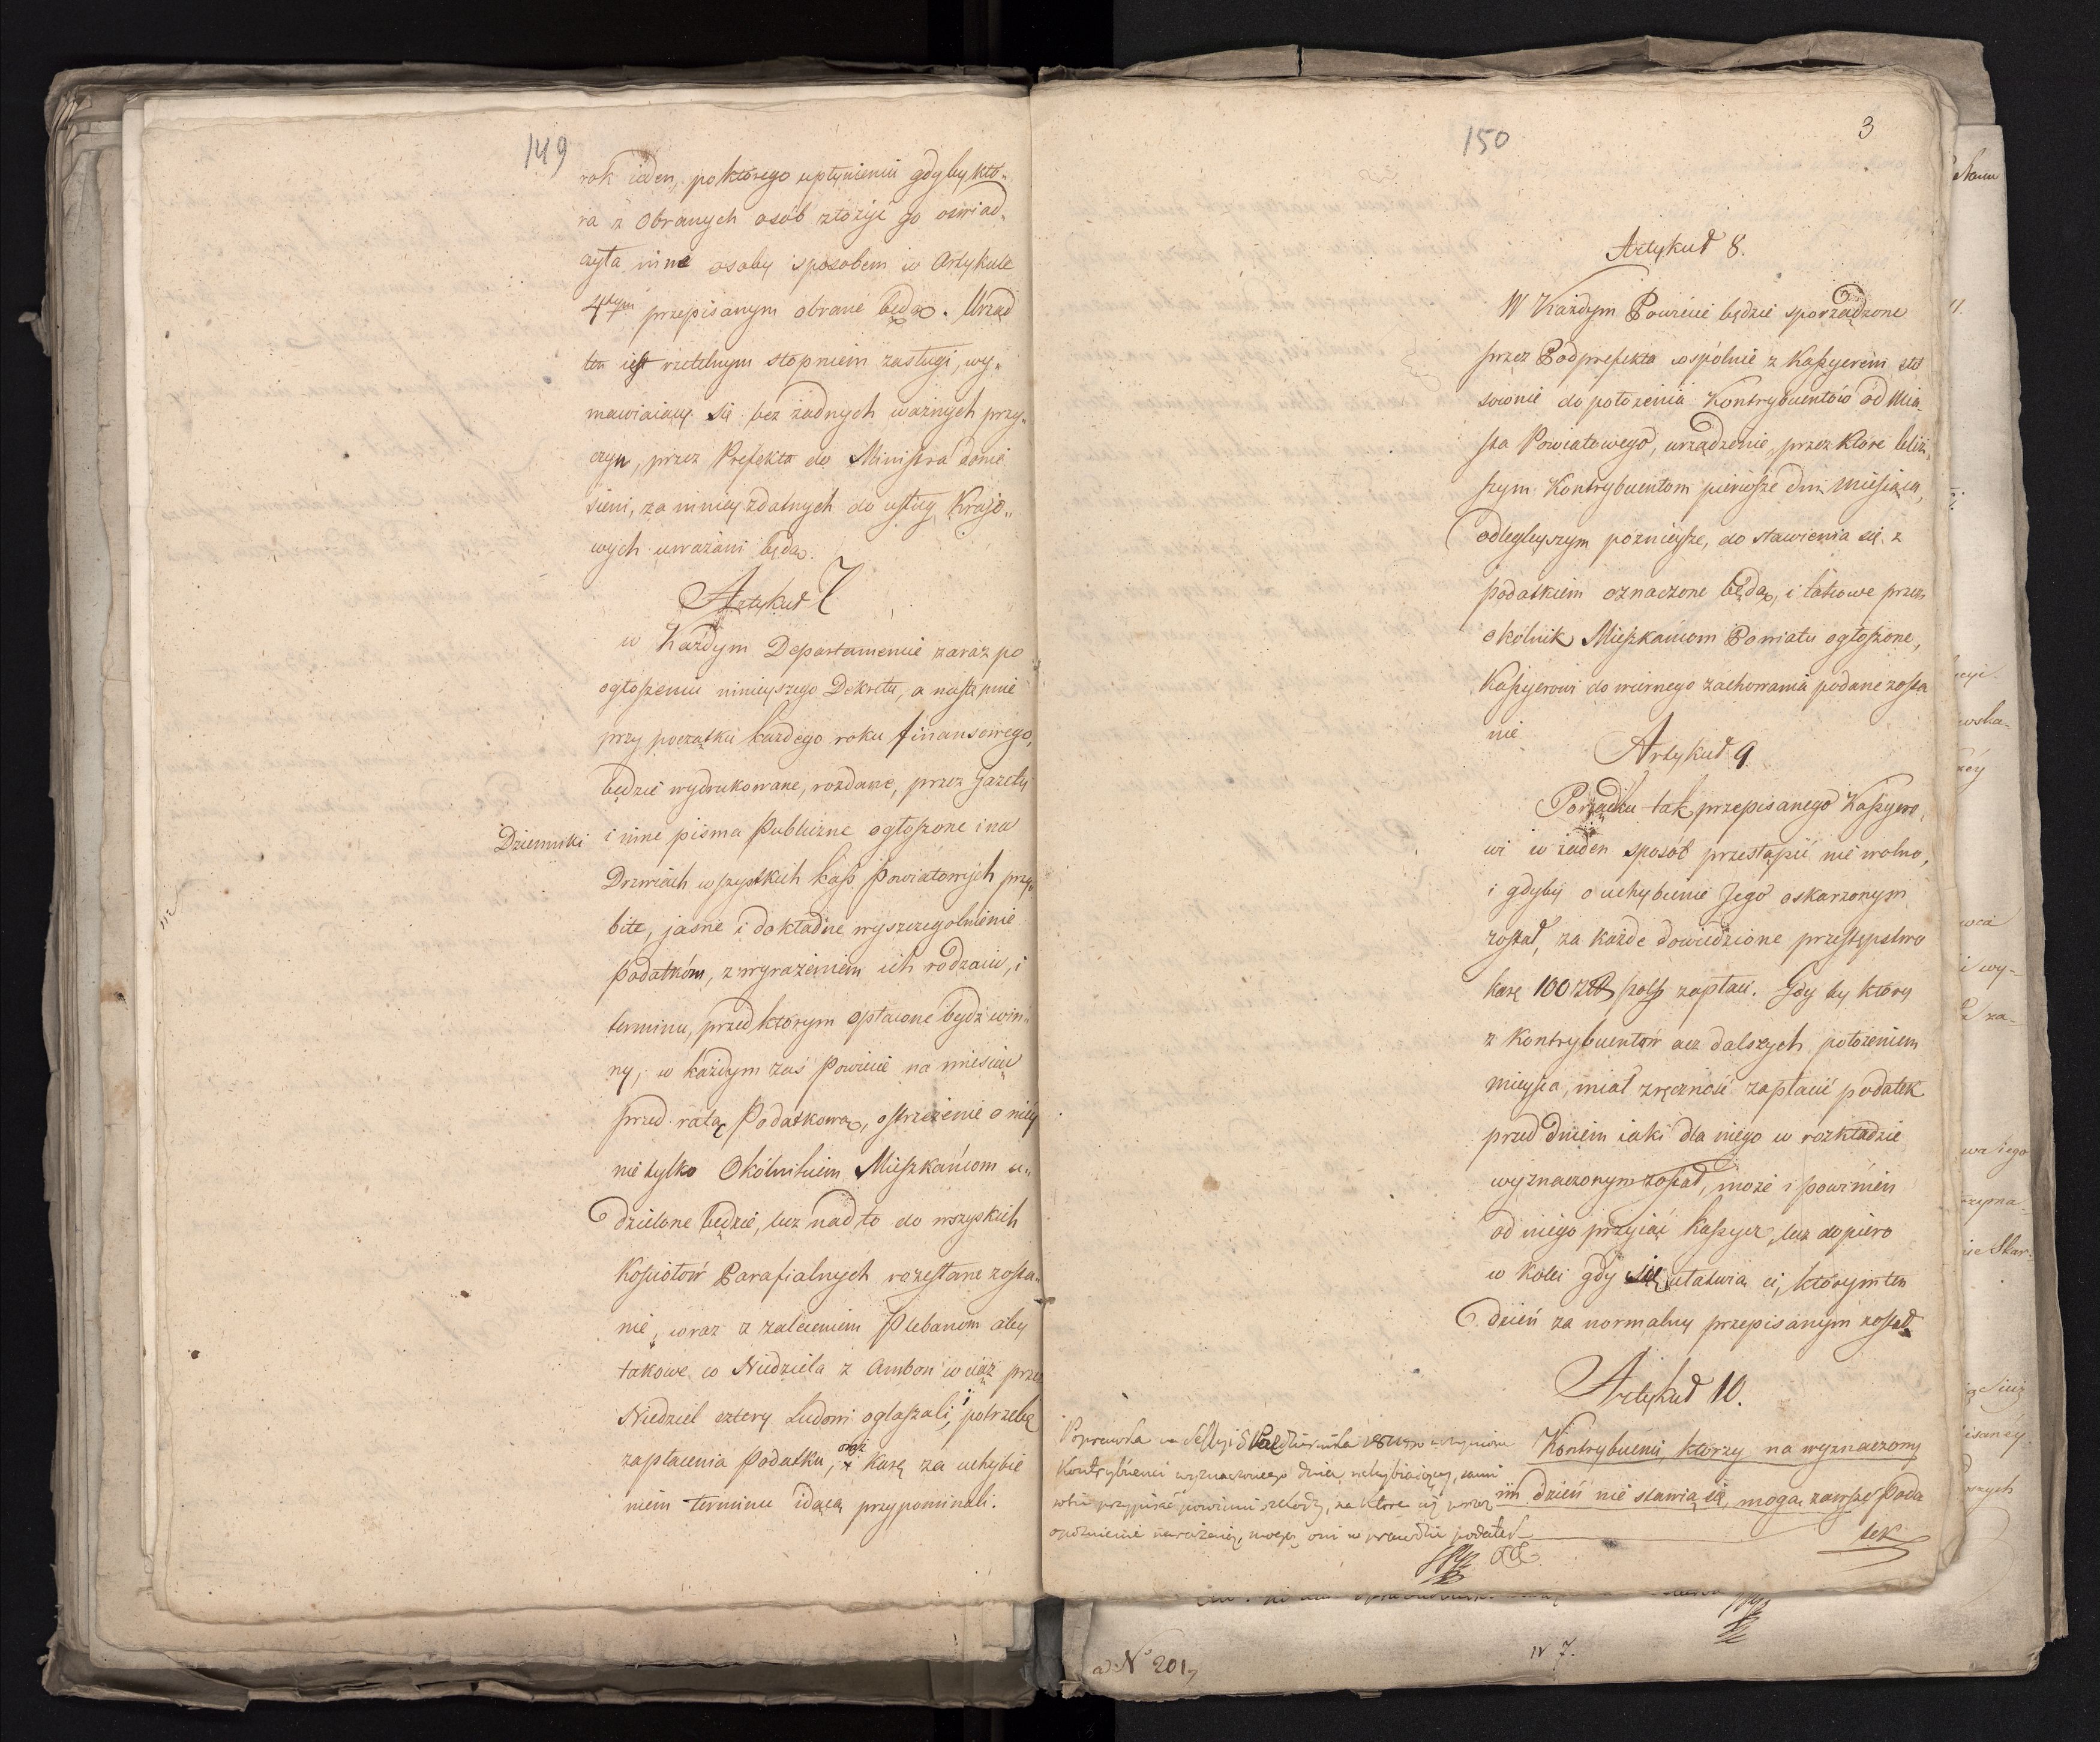 149
rok ieden, po którego upłynieniu gdyby któ„
ra z Obranych osób złożyć go oswiad„
czyła inne osoby sposobem w Artykule
4tym przepisanym obrane będą. Urząd
ten iest rzetelnym stopniem zasługi, wy„
mawiaiący się bez żadnych ważnych przy„
czyn, przez Prefekta do Ministra donie
sieni, za mniey zdatnych do usług Krajo„
wych uważani będą.
Artykuł 7
w Każdym Departamencie zaraz po
ogłoszeniu ninieyszego Dekretu, a następnie
przy początku każdego roku finansowego,
będzie wydrukowane, rozdane, przez Gazety
Dzienniki
i inne pisma Publiczne ogłoszone i na
Drzwiach wszystkich kass Powiatowych przy„
bite, jasne i dokładne wyszczegolnienie
Podatków, z wyrażeniem ich rodzaiu, i
terminu, przed którym opłacone bydź win„
ny, w każdym zaś Powiecie na miesiąc
przed ratą Podatkową, ostrzeżenie o niéy
nie tylko Okólnikiem Mieszkańcom u„
dzielone będzie, lecz nadto do wszyskich
Kościołów Parafialnych rozesłane zosta„
nie, wraz z zaleceniem Plebanom aby
takowe w Niedziela z Ambon w ciąż przez
Niedziel cztery Ludowi ogłaszali, i potrzebę
zapłacenia Podatku, oraz karę za uchybie
niem terminu idącą przypominali.
150
3
Artykuł 8.
W Każdym Powiecie będzie sporządzone
przez Podprefekta wspólnie z Kassyerem sto
sownie do położenia Kontrybuentów od Mia„
sta Powiatowego, urządzenie, przez które bliż„
szym Kontrybuentom pierwsze dni Miesiąca,
odległeyszym poznieysze, do stawienia się z
podatkiem oznaczone będą, i takowe przez
okólnik Mieszkańcom Powiatu ogłoszone,
Kassyerowi do wiernego zachowania podane zosta
nie
Artykuł 9
Porządku tak przepisanego Kassyero„
wi w żaden sposób przestąpić nie wolno,
i gdyby o uchybienie Jego oskarzonym
został, za każde dowiedzione przestępstwo
karę 100 Zł pols zapłaci. Gdy by który
z Kontrybuentów acz dalszych położeniem
mieysca, miał zręczność zapłacić podatek
przed dniem iaki dla niego w rozkładzie
wyznaczonym został, może i powinien
od niego przyiąć Kassyer, lecz dopiero
w kolei gdy się ułatwią ci, którym ten
dzień za normalny przepisanym został
Artykuł 10.
Kontrybuenci, którzy na wyznaczony
im dzień nie stawią się, mogą zawsze Poda
tek
Poprawka na Sessyi 5 Października uczyniona
Kontrybuenci wyznaczonego dnia uchybiaiący, sami
sobie przypisać powinni szkodę, na które się przez
opóźnienie narażaią, mogą oni w prawdzie podatek
ad N 201,
N 7.